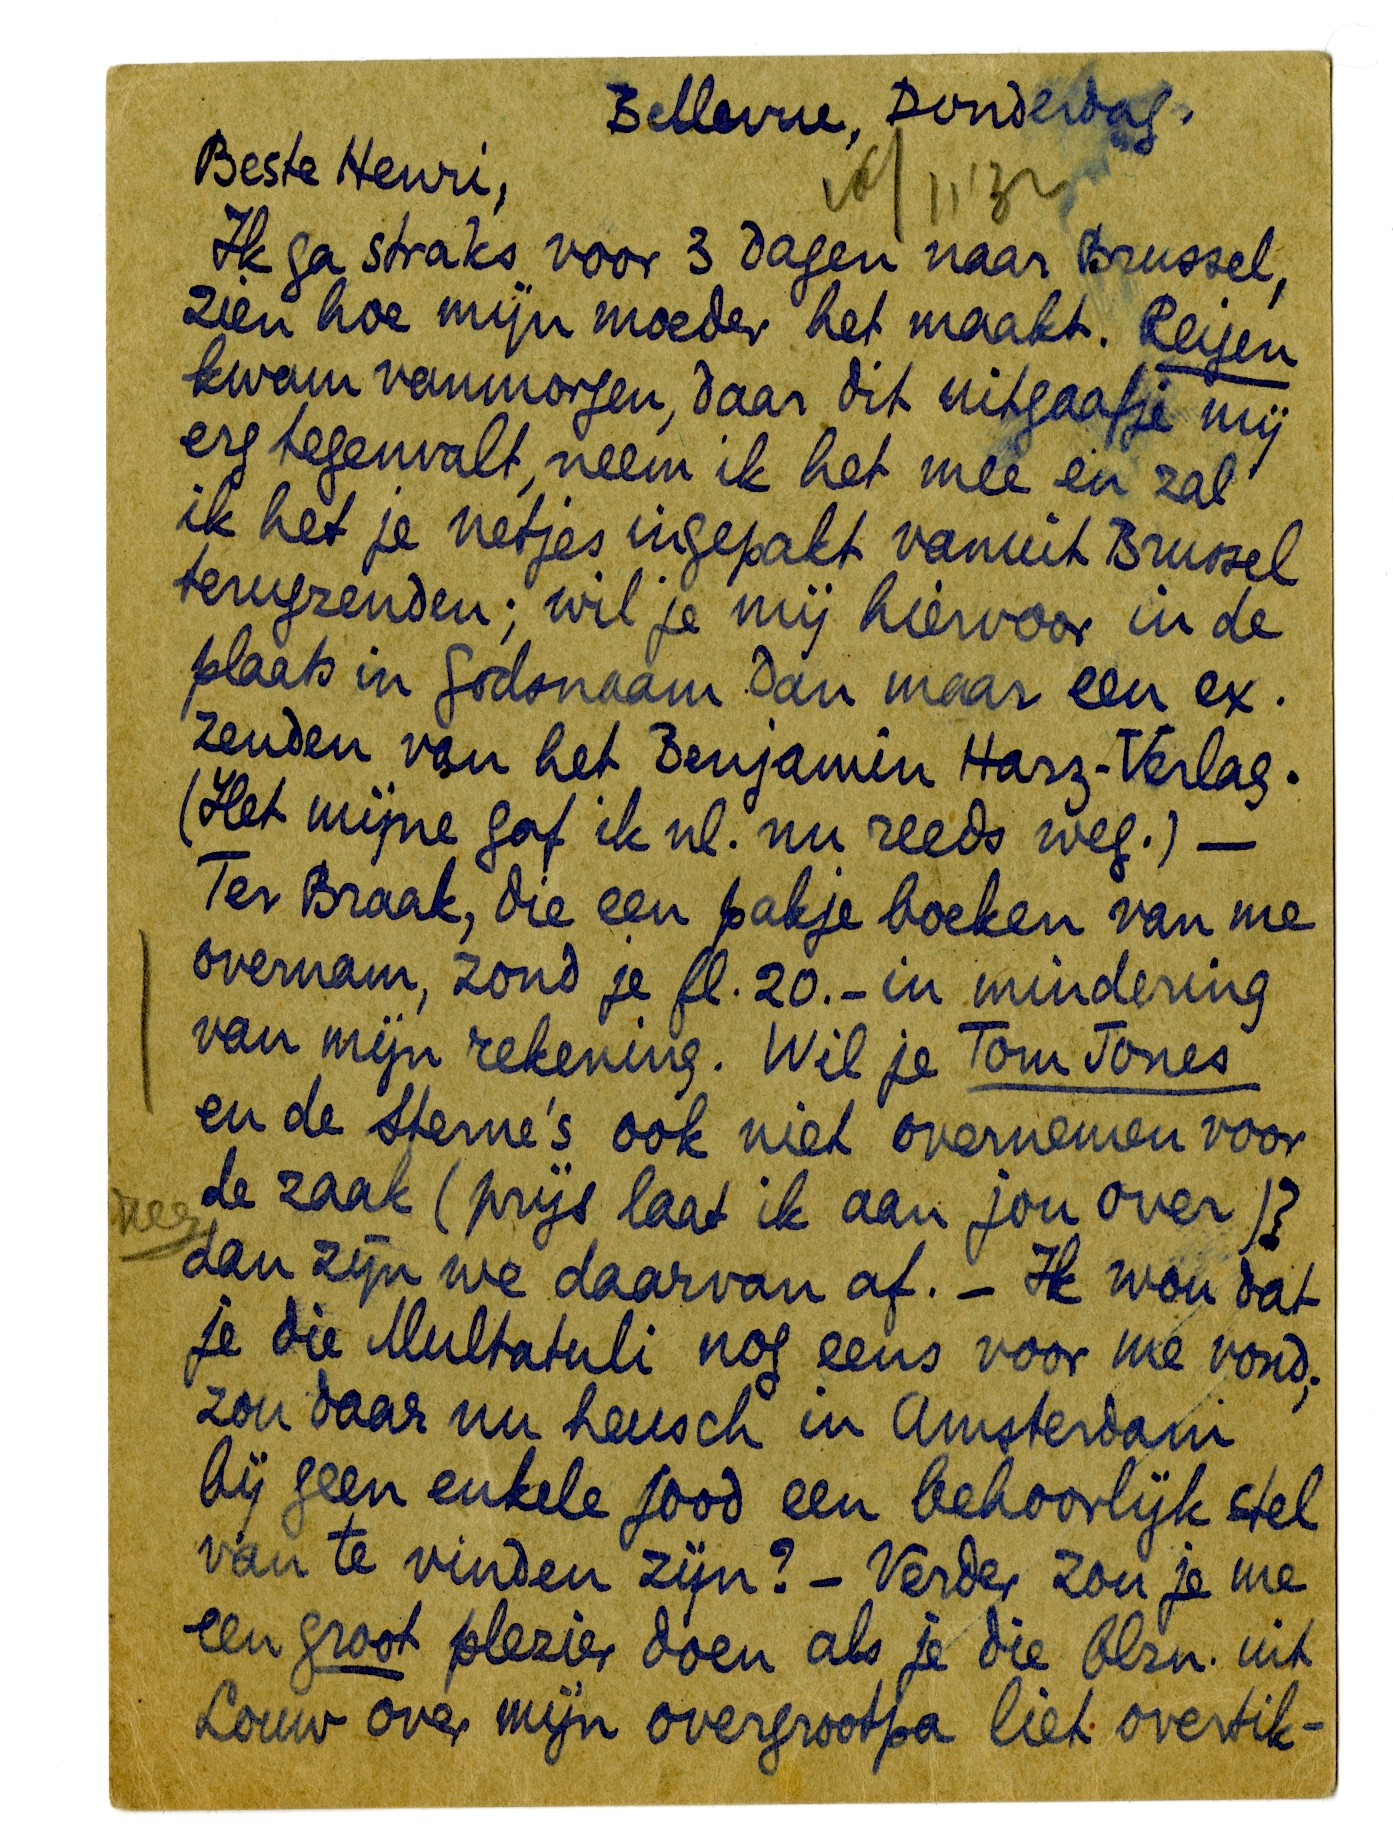 Bellevue, Donderdag.
11'32
Beste Henri,
Ik ga straks voor 3 dagen naar Brussel,
zien hoe mijn moeder het maakt. Reijen
kwam vanmorgen, daar dit uitgaafje mij
erg tegenvalt, neem ik het mee en zal
ik het je netjes ingepakt vanuit Brussel
terugzenden; wil je mij hiervoor in de
plaats in godsnaam dan maar een ex.
zenden van het Benjamin Harz-Verlag.
(Het mijne gaf ik nl. nu reeds weg.) —
Ter Braak, die een pakje boeken van me
overnam, zond je fl. 20.– in mindering
van mijn rekening. Wil je Tom Jones
en de Sterne's ook niet overnemen voor
de zaak (prijs laat ik aan jou over)?
dan zijn we daarvan af. – Ik wou dat
je die Multatuli nog eens voor me vond;
zou daar nu heusch in Amsterdam
bij geen enkele jood een behoorlijk stel
van te vinden zijn? – Verder zou je me
een groot plezier doen als je die blzn. uit
Louw over mijn overgrootpa liet overtik-